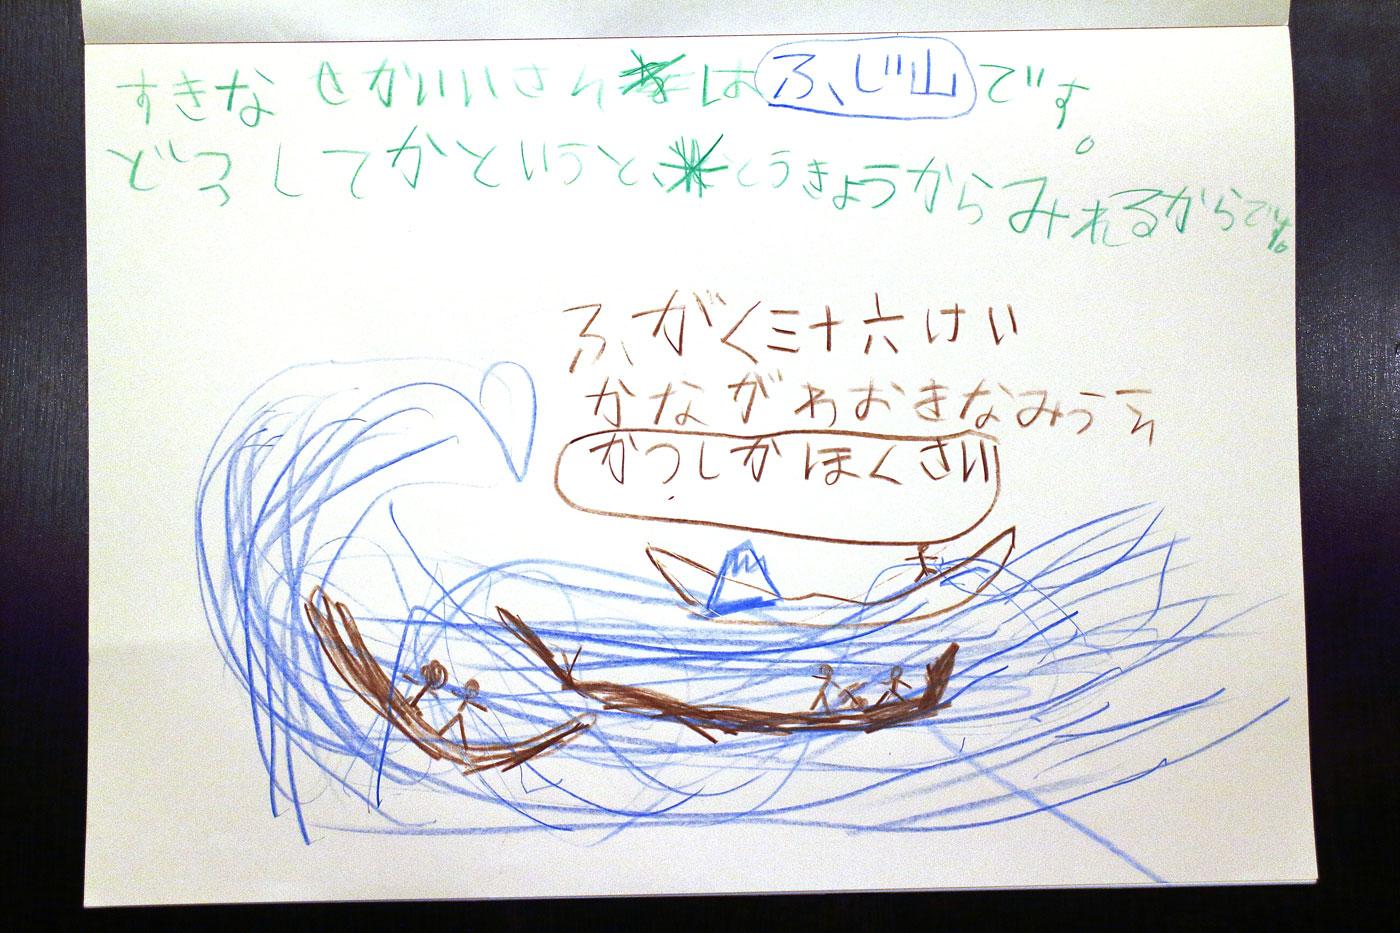 すきな せかいいさん は ふじ山 です。
どうしてかというと、とうきょうからみれるからです。
ふがく三十六けい
かながわおきなみうら
かつしかほくさい